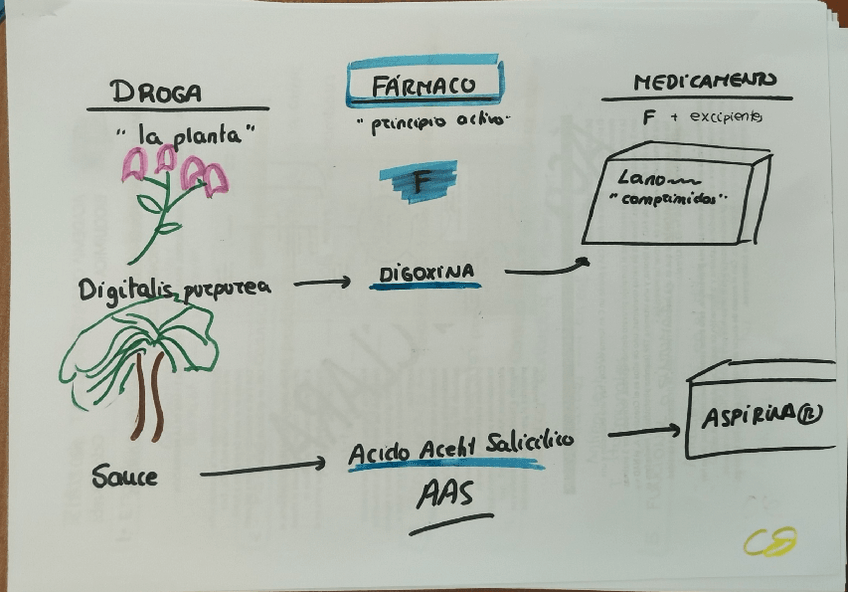 DROGA
"la planta"
FÁRMACO
"principio activo"
F
MEDICAMENTO
F + excipientes
"comprimidos"
Digitalis purpurea
DIGOXINA
Sauce
Acido Acetil Salicílico
AAS
ASPIRINA®